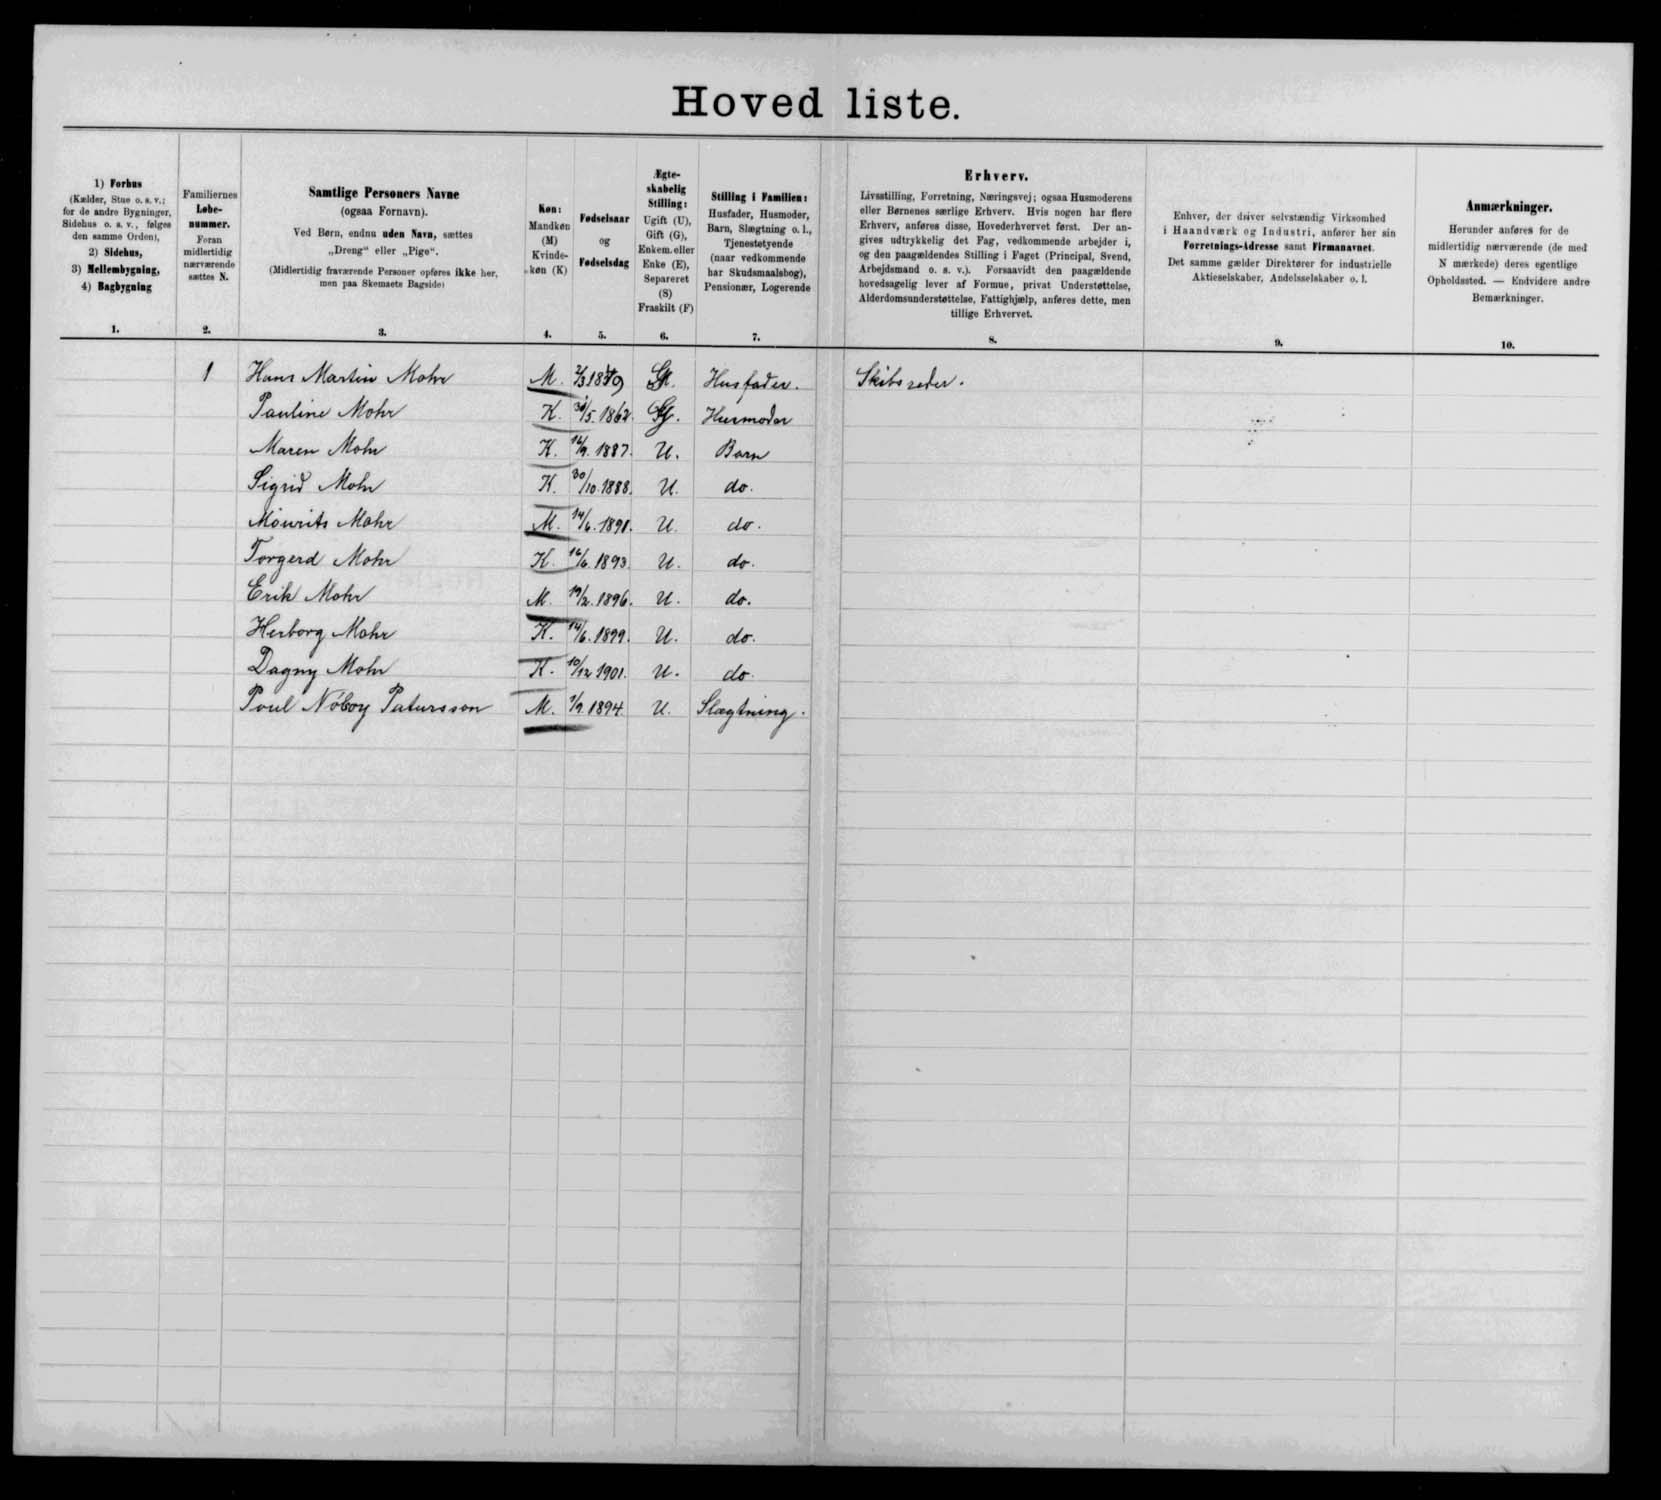 Hoved liste.
1) Forhus
(Kælder, Stue o. s. v.;
for de andre Bygninger,
Sidehus o. s. v., følges
den samme Orden),
2) Sidehus,
3) Mellembygning,
4) Bagbygning
1.
Familiernes
Løbe-
nummer.
Foran
midlertidig
nærværende
sættes N.
2.
Samtlige Personers Navne
(ogsaa Fornavn).
Ved Børn, endnu uden Navn, sættes
„Dreng“ eller „Pige“.
(Midlertidig fraværende Personer opføres ikke her,
men paa Skemaets Bagside)
3.
Køn:
Mandkøn
(M)
Kvinde-
køn (K)
4.
Fødselsaar
og
Fødselsdag
5.
Ægte-
skabelig
Stilling:
Ugift (U),
Gift (G),
Enkem. eller
Enke (E),
Separeret
(S)
Fraskilt (F)
6.
Stilling i Familien:
Husfader, Husmoder,
Barn, Slægtning o. l.,
Tjenestetyende
(naar vedkommende
har Skudsmaalsbog),
Pensionær, Logerende
7.
Erhverv.
Livsstilling, Forretning, Næringsvej; ogsaa Husmoderens
eller Børnenes særlige Erhverv. Hvis nogen har flere
Erhverv, anføres disse, Hovederhvervet først. Der an-
gives udtrykkelig det Fag, vedkommende arbejder i,
og den paagældendes Stilling i Faget (Principal, Svend,
Arbejdsmand o. s. v.). Forsaavidt den paagældende
hovedsagelig lever af Formue, privat Understøttelse,
Alderdomsunderstøttelse, Fattighjælp, anføres dette, men
tillige Erhvervet.
8.
Enhver, der driver selvstændig Virksomhed
i Haandværk og Industri, anfører her sin
Forretnings-Adresse samt Firmanavnet.
Det samme gælder Direktører for industrielle
Aktieselskaber, Andelsselskaber o. l.
9.
Anmærkninger.
Herunder anføres for de
midlertidig nærværende (de med
N mærkede) deres egentlige
Opholdssted. — Endvidere andre
Bemærkninger.
10.
1 Hans Martin Mohr M. 2/3 18 G. Husfader. Skibsreder.
Pauline Mohr K. /5. 1862. G. Husmoder
Maren Mohr K. 1887. U. Barn
Sigrid Mohr K. 30/10. 1888. U. do.
Mourits Mohr M. 14/6. 1891. U. do.
Torgerd Mohr K. 16/6. 1893. U. do.
Erik Mohr M. 19/2. 1896. U. do.
Herborg Mohr K. 14/6. 1899. U. do.
Dagny Mohr K. 10/12 1901. U. do.
Poul Nóboy Patursson M. 1894. U. Slægtning.